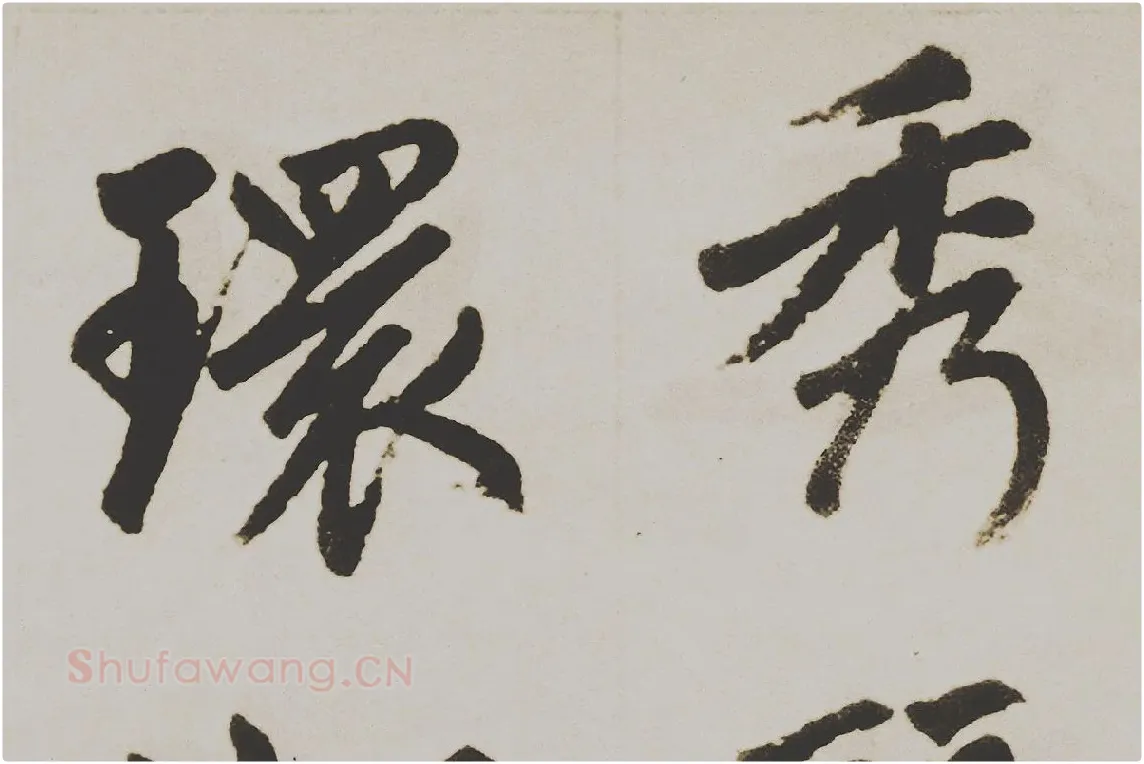 秀
環
Shufawang.CN